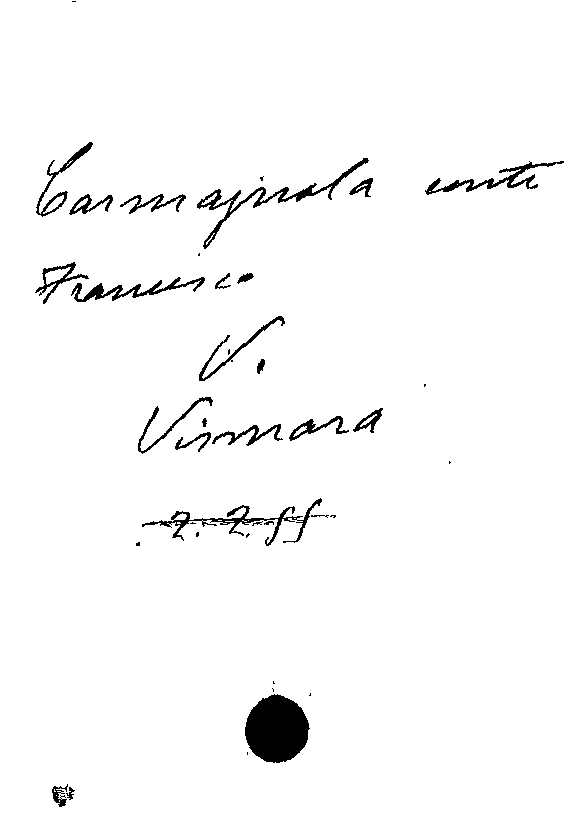 Carmagnola conte
Francesco
V.
Vismara